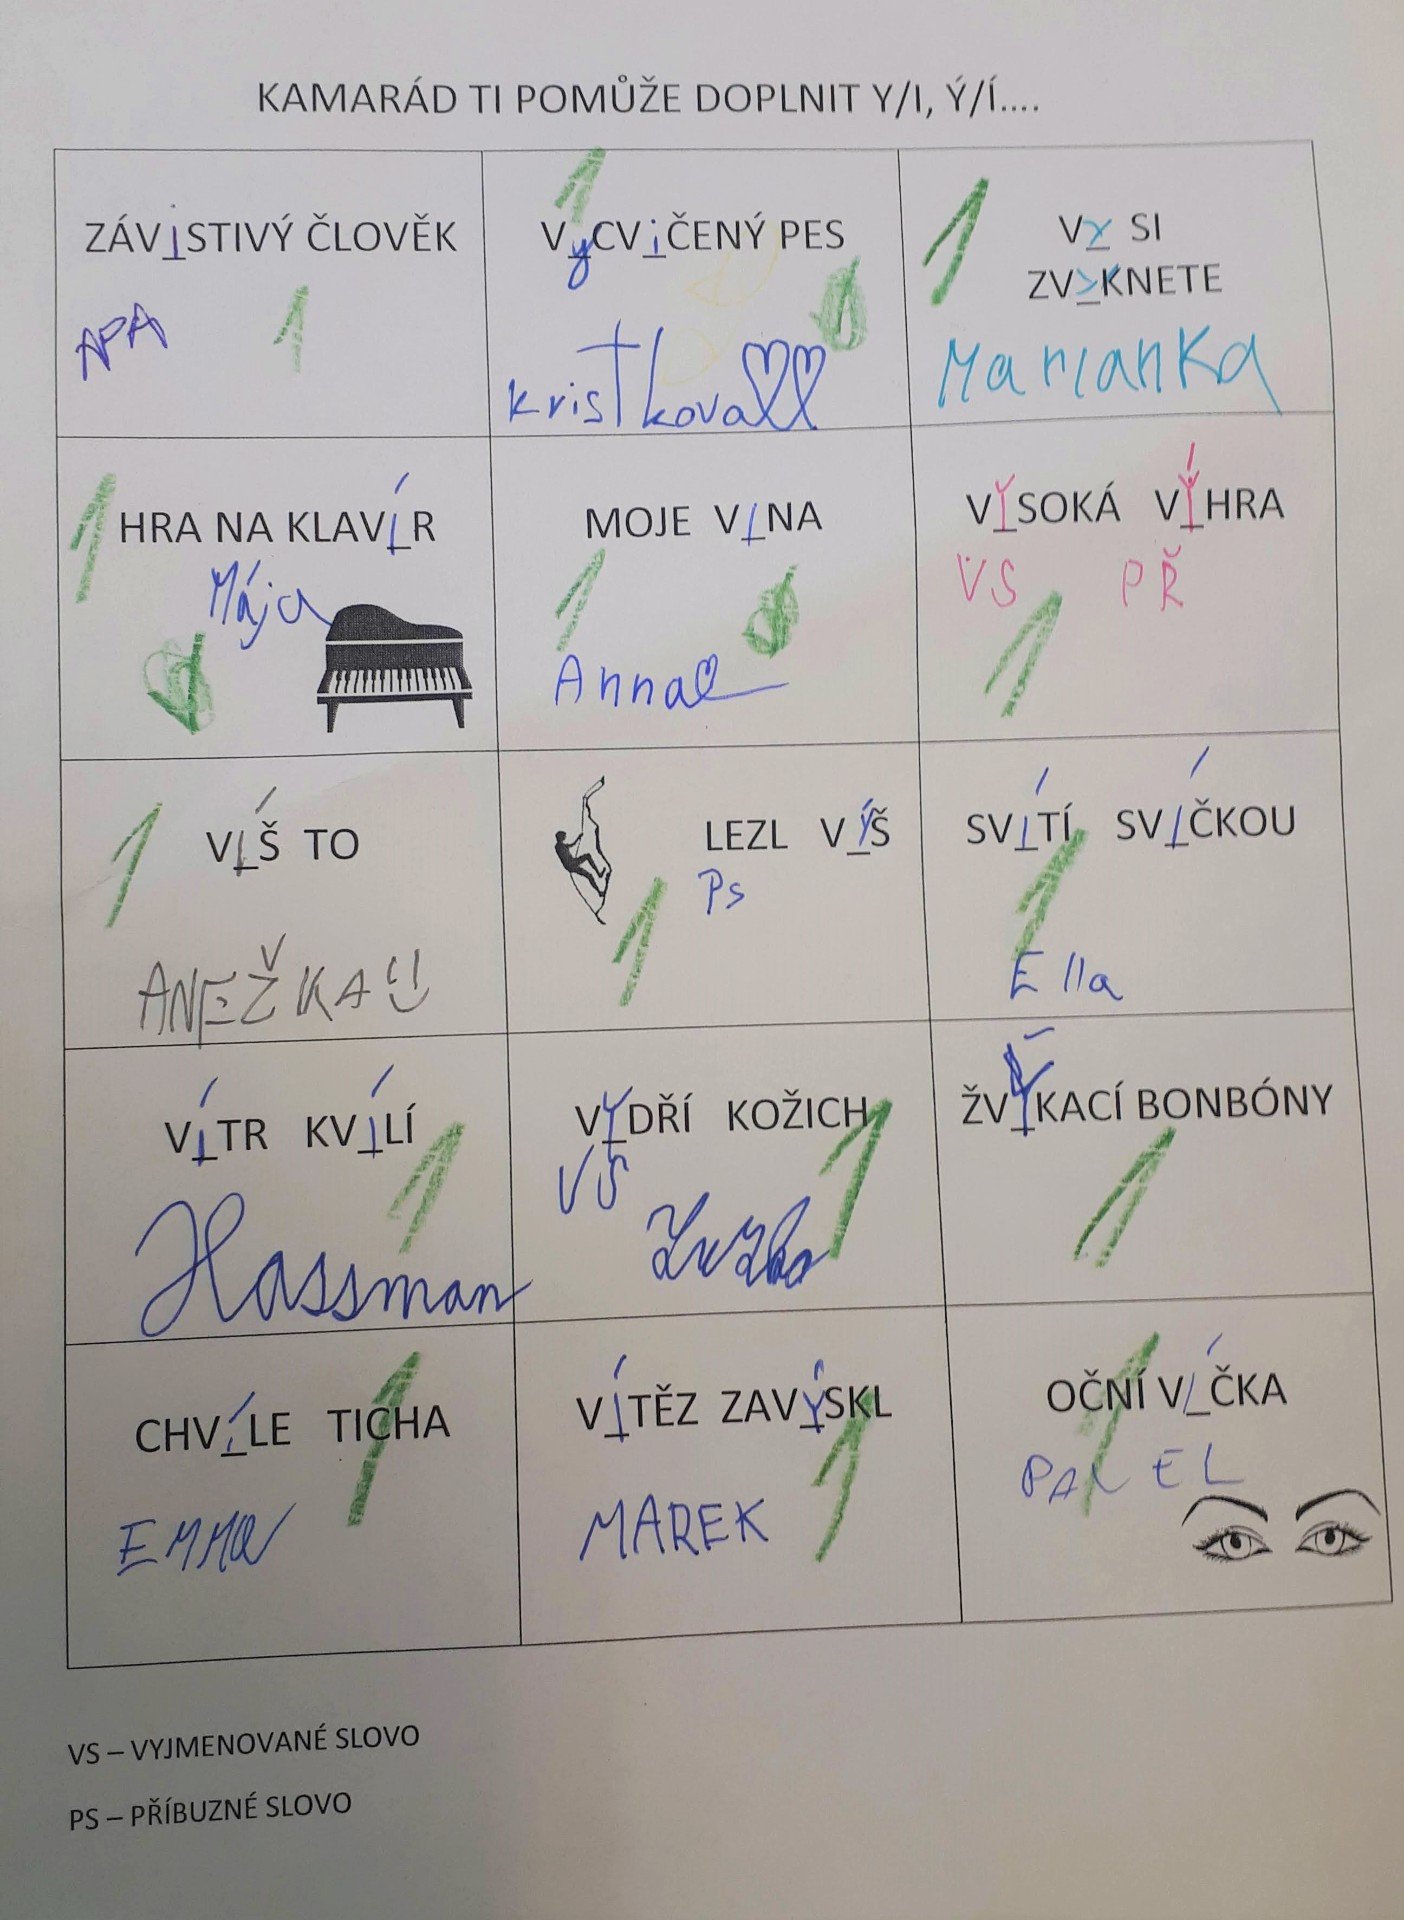 KAMARÁD TI POMŮŽE DOPLNIT Y/I, Ý/Í....
ZÁVISTIVÝ ČLOVĚK
APA
1
VyCVičENÝ PES
1
Kristkova
VY SI
ZVYKNETE
1
Marianka
HRA NA KLAVÍR
1
Mája
MOJE VINA
1
Anna
VYSOKÁ VÝHRA
VS PŘ
1
VÍŠ TO
1
ANEŽKA
LEZL VÝŠ
Ps
1
SVÍTÍ SVÍČKOU
1
Ella
VÍTR KVÍLÍ
1
Hassman
VYDŘÍ KOŽICH
VS
1
ŽVÝKACÍ BONBÓNY
1
CHVÍLE TICHA
1
EMMa
VÍTĚZ ZAVÝSKL
1
MAREK
OČNÍ VÍČKA
1
PAVEL
VS – VYJMENOVANÉ SLOVO
PS – PŘÍBUZNÉ SLOVO